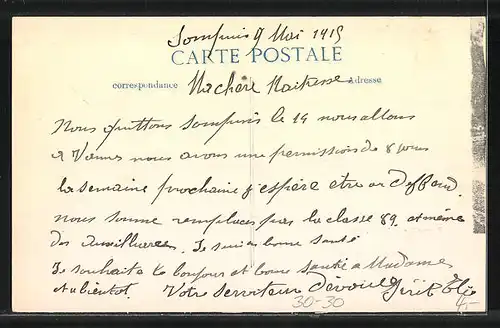 Sompuis 9 Mai 1915
CARTE POSTALE
correspondance Adresse
Ma chère Maitresse
Nous quittons sompuis le 14 nous allons
a Vannes nous avons une permission de 8 jours
la semaine prochaine j'espère etre au Deffand
nous somme remplacés par la classe 89 et même
des auxilliaires. Je suis en bonne santé
Je souhaite le bonjour et bonne santé a Madame
et a bientot. Votre serviteur dévoué
30-30 4,-